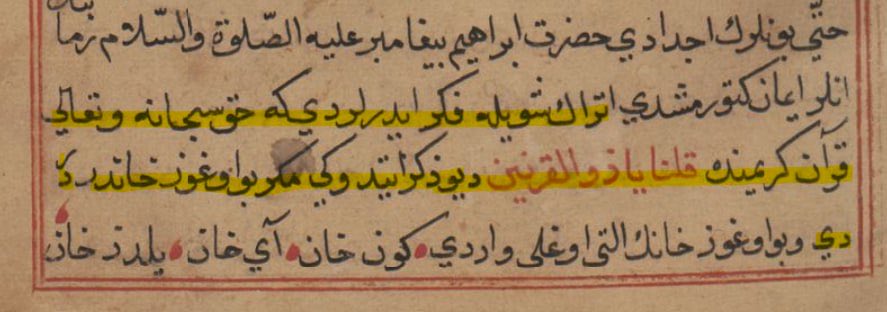 حتّى بونلرك اجدادي حضرت ابراهيم بيغامبر عليه الصّلوة والسّلام زما
انلر ايمان كتورمشدي اتراك شويله فكر ايدرلردي كه حق سبحانه وتعالى
قرآن كريمنده قلنا ياذو القرنين ديو ذكر ايتدوكي مكر بو اوغوز خاندر د
دي وبو اوغوز خانك التى اوغلى واردي كون خان آي خان يلدز خان